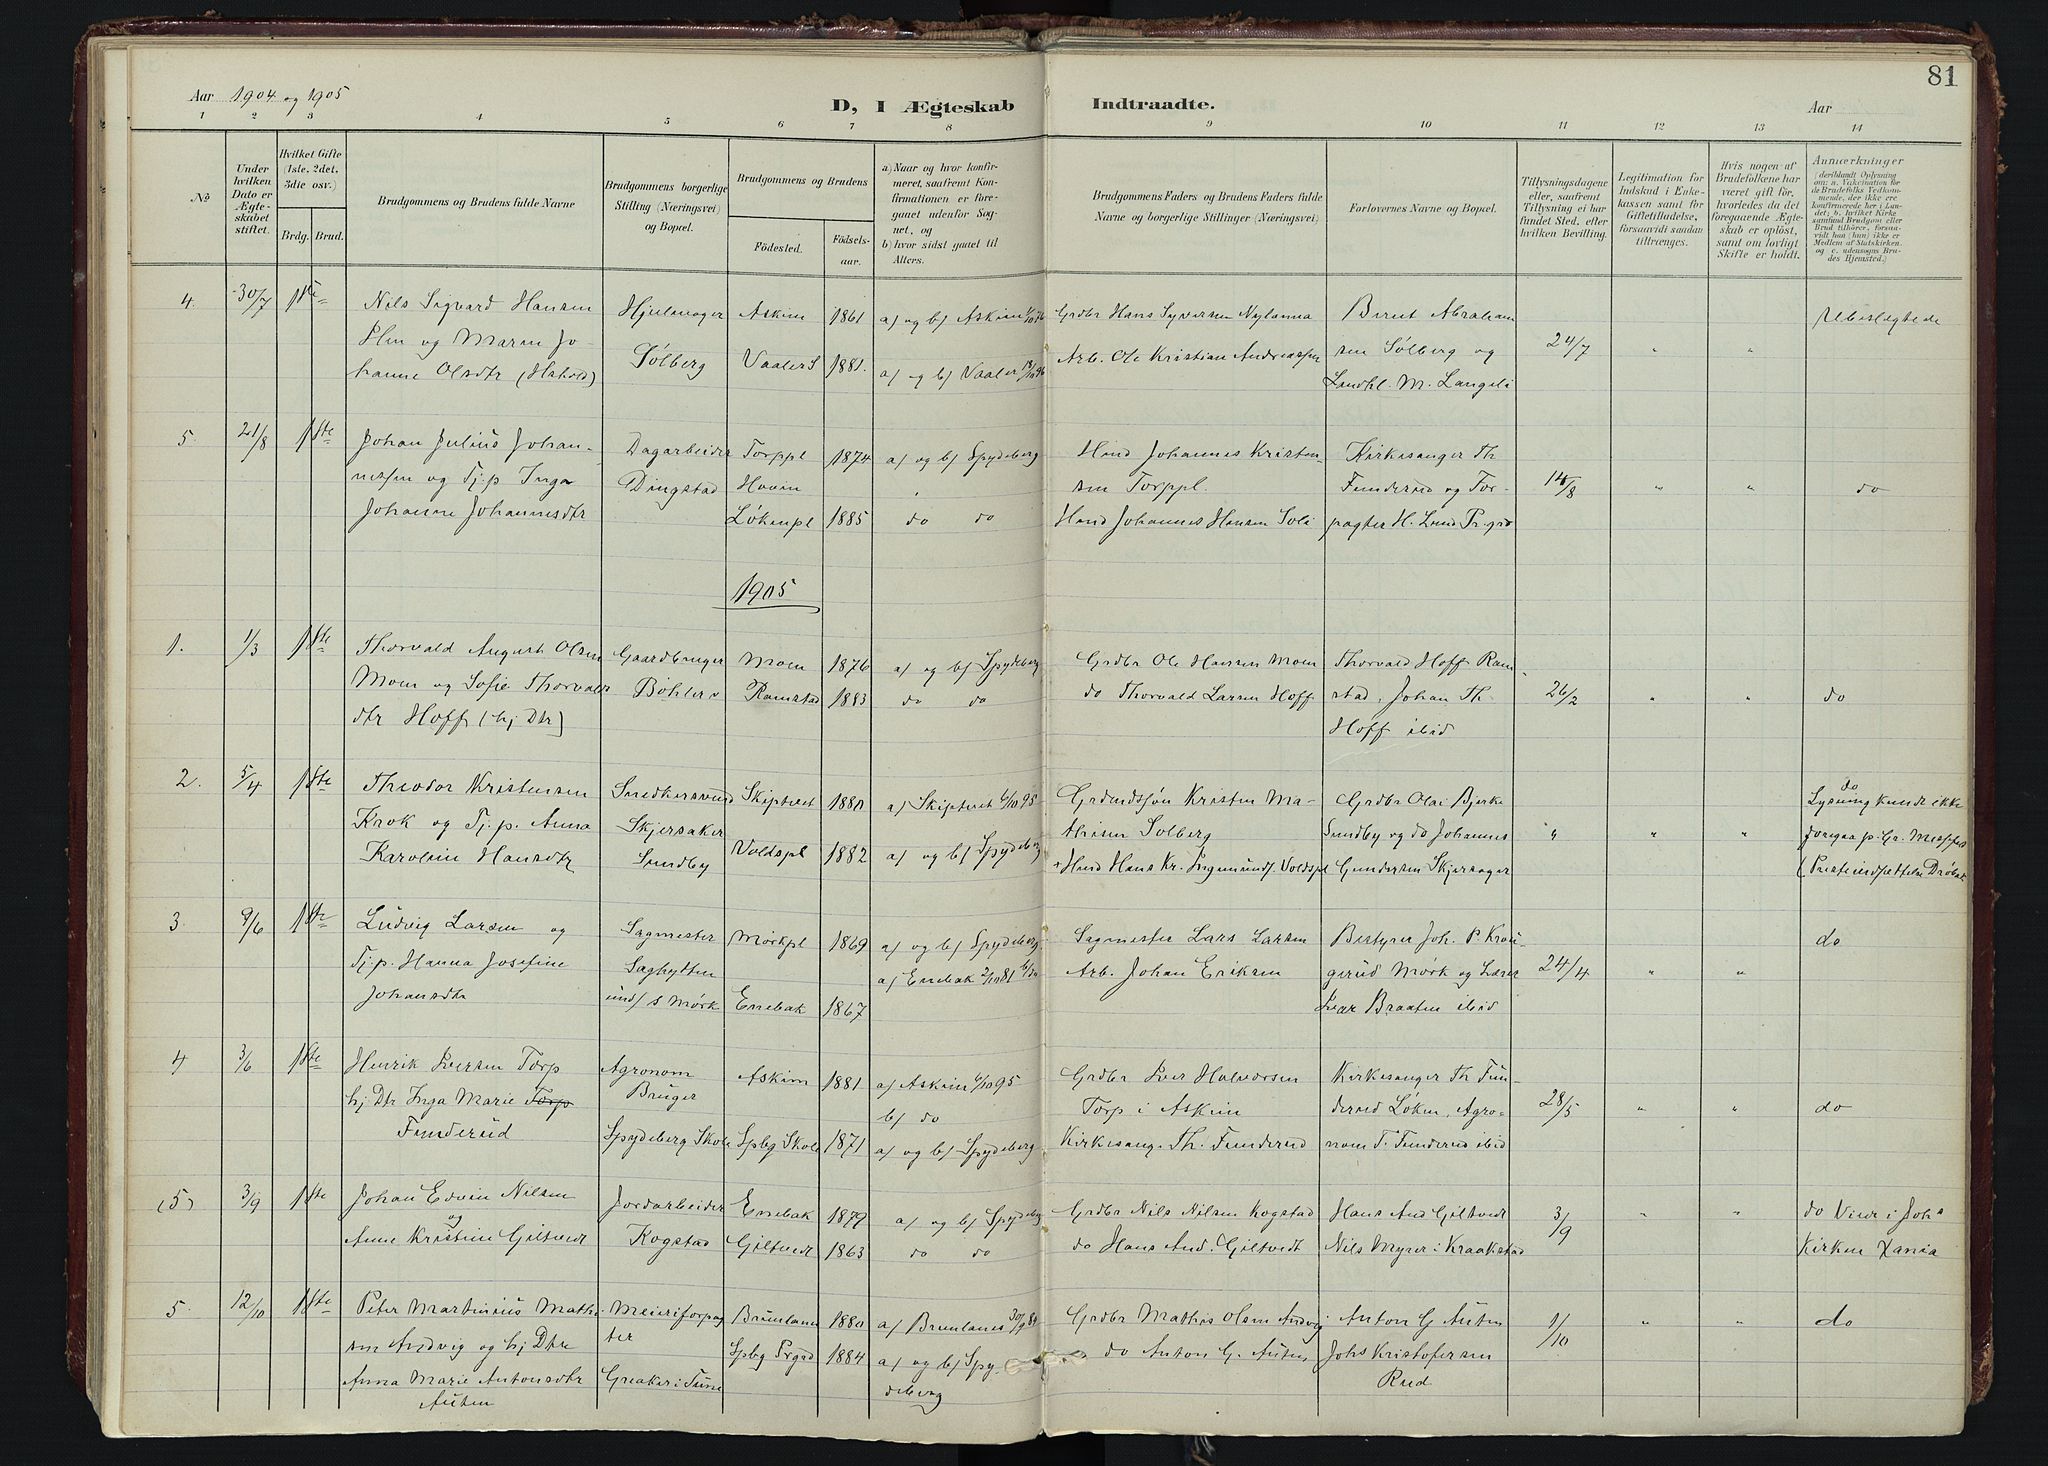 81
Aar 1904 og 1905
D, I Ægteskab Indtraadte.
Aar
1 2 3 4 5 6 7 8 9 10 11 12 13 14
No
Under hvilken Dato er Ægteskabet stiftet.
Hvilket Gifte (1ste, 2det, 3die osv.)
Brdg. Brud.
Brudgommens og Brudens fulde Navne
Brudgommens borgerlige Stilling (Næringsvei) og Bopæl.
Brudgommens og Brudens
Fødested.
Fødselsaar.
a) Naar og hvor konfirmeret, saafremt Konfirmationen er foregaaet udenfor Sognet, og
b) hvor sidst gaaet til Alters.
Brudgommens Faders og Brudens Faders fulde Navne og borgerlige Stillinger (Næringsvei)
Forlovernes Navne og Bopæl.
Tillysningsdagene eller, saafremt Tillysning ei har fundet Sted, efter hvilken Bevilling.
Legitimation for Indskud i Enkekassen samt for Giftetilladelse, forsaavidt saadan tiltrænges.
Hvis nogen af Brudefolkene har været gift før, hvorledes da det foregaaende Ægteskab er opløst, samt om lovligt Skifte er holdt.
Anmærkninger (deriblandt Oplysning om: a. Vakcination for de Brudefolks Vedkommende, der ikke ere konfirmerede her i Landet; b. hvilket Kirkesamfund Brudgom eller Brud tilhører, forsaavidt han (hun) ikke er Medlem af Statskirken. og c. udensogns Brudes Hjemsted.)
4. 30/7 1ste Nils Sigvard Hansen Hjulmager Askim 1861 a) og b) Askim Grdbr Hans Syversen Nylanna Bernt Abraham Ubeslægtede
og Maren Jo- Sølberg Vaaler S 1881. a) og b) Vaaler Arb. Ole Kristian Andreassen sen Sølberg og 24/7 " "
hanne Olsdtr Landhl. M. Langeli
5. 21/8 1ste Johan Julius Johan- Dagarbeider Torppl 1874 a) og b) Spydeberg Hmd Johannes Kristen- Kirkesanger Th
nessen og Tj.p Inga Dingstad Hovin sen Torppl. Funderud og For- 14/8 " " do
Johanne Johannesdtr Løkenpl 1885 do do Hmd Johannes Hansen Soli pagter H. Lund Pr.grd
1905
1. 1/3 1ste Thorvald August Olsen Gaardbruger Moen 1876 a) og b) Spydeberg Grdbr Ole Hansen Moen Thorvald Hoff Ram
Moen og Sofie Thorvalds Bøhler Ramstad 1883 do do do Thorvald Larsen Hoff stad, Johan Th. 26/2 " " do
dtr Hoff (hj Dtr) Hoff ibid
2. 5/4 1ste Theodor Kristensen Snedkersvend Skiptvet 1880 a) Skiptvet 6/10 95 Grdmdssøn Kristen Ma- Grdbr Olai Bjerke do
Krok og Tj.p. Anna Skjersaker thisen Solberg Sundby og do Johannes " " " Lysning kunde ikke
Karoline Hansdtr Sundby Voldspl 1882 a) og b) Spydeberg Hmd Hans Kr. Ingmunds. Voldspl Gundersen Skjersager foregaa p. Gr.
3. 9/6 1ste Ludvig Larsen og Sagmester Mørkpl 1869 a) og b) Spydeberg Sagmester Lars Larsen Bestyrer Joh. P. Krog- do
Tj.p. Hanna Josefine Saghytten a) Enebak 2/10 81 Arb. Johan Eriksen gerud Mørk og Lærer 24/4 " "
Johansdtr und/s Mørk Enebak 1867 Iver Braaten ibid
4 3/6 1ste Henrik Iversen Torp Agronom Askim 1881 a) Askim 6/10 95 Grdbr Iver Halvorsen Kirkesanger Th Fun-
hj Dtr Inga Marie Torp Bruger b) do Torp i Askim derud Løken, Agro- 28/5 " " do
Funderud Spydeberg Skole Spbg Skole 1871 a) og b) Spydeberg Kirkesang. Th. Funderud nom T. Funderud ibid
(5) 3/9 1ste Johan Edvin Nilsen Jordarbeider Enebak 1879 a) og b) Spydeberg Grdbr Nils Nilsen Kogstad Hans And Giltvedt 3/9 " " do Viede i Johs
og
Anne Kristine Giltvedt Kogstad Giltvedt 1863 do do do Hans And. Giltvedt Nils Myrer i Kraakstad Kirken Xania
5. 12/10 1ste Peter Martinius Mathi- Meieriforpag Brunlanes 1880 a) Brunlanes Grdbr Mathis Olsen Andvig Anton G Auten 1/10 " " do
sen Andvig og hj Dtr ter Spbg Prgd 1884 a) og b) Spy- do Anton G. Auten Johs Kristofersen
Anna Marie Antonsdtr Greaker i Tune deberg Rud
Auten